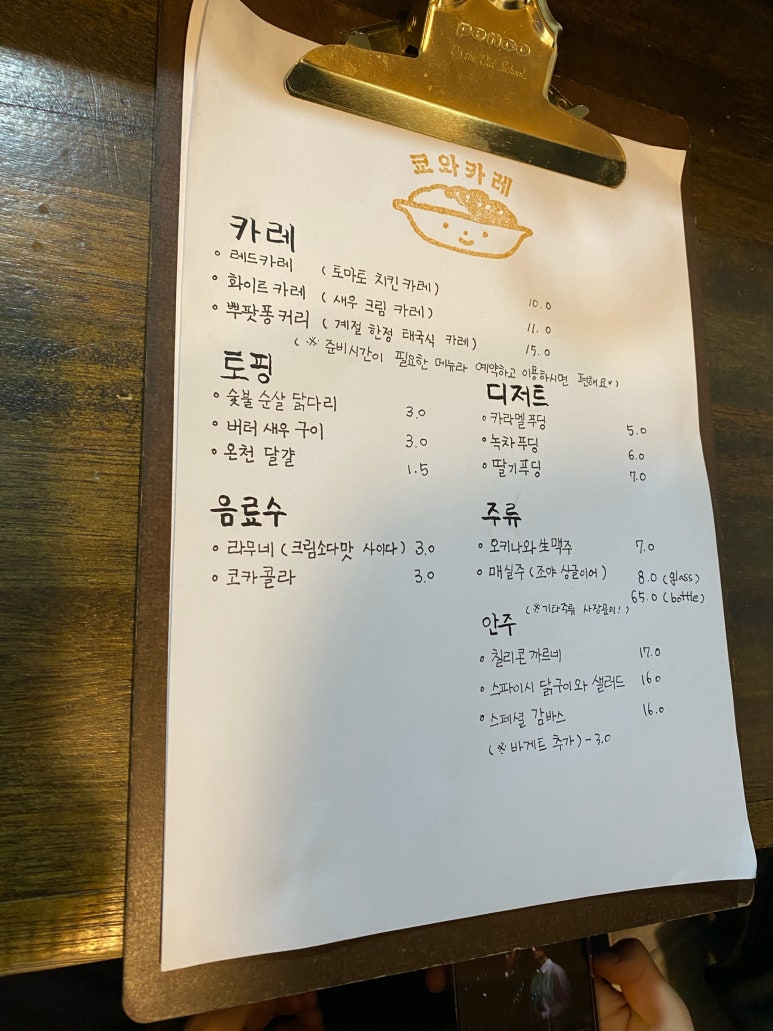 penco
쿄와카레
카레
레드카레 (토마토 치킨 카레) 10.0
화이트카레 (새우 크림 카레) 11.0
뿌팟퐁커리 (계절 한정 태국식 카레) 15.0
(※ 준비시간이 필요한 메뉴라 예약하고 이용하시면 편해요♥)
토핑
숯불 순살 닭다리 3.0
버터 새우 구이 3.0
온천 달걀 1.5
디저트
카라멜푸딩 5.0
녹차푸딩 6.0
딸기푸딩 7.0
음료수
라무네 (크림소다맛 사이다) 3.0
코카콜라 3.0
주류
오키나와生맥주 7.0
매실주 (쵸야 싱글이어) 8.0 (glass)
65.0 (bottle)
(※기타주류 사장문의!)
안주
칠리콘까르네 17.0
스파이시 닭구이와 샐러드 16.0
스페셜 감바스 16.0
(※ 바게트 추가) - 3.0